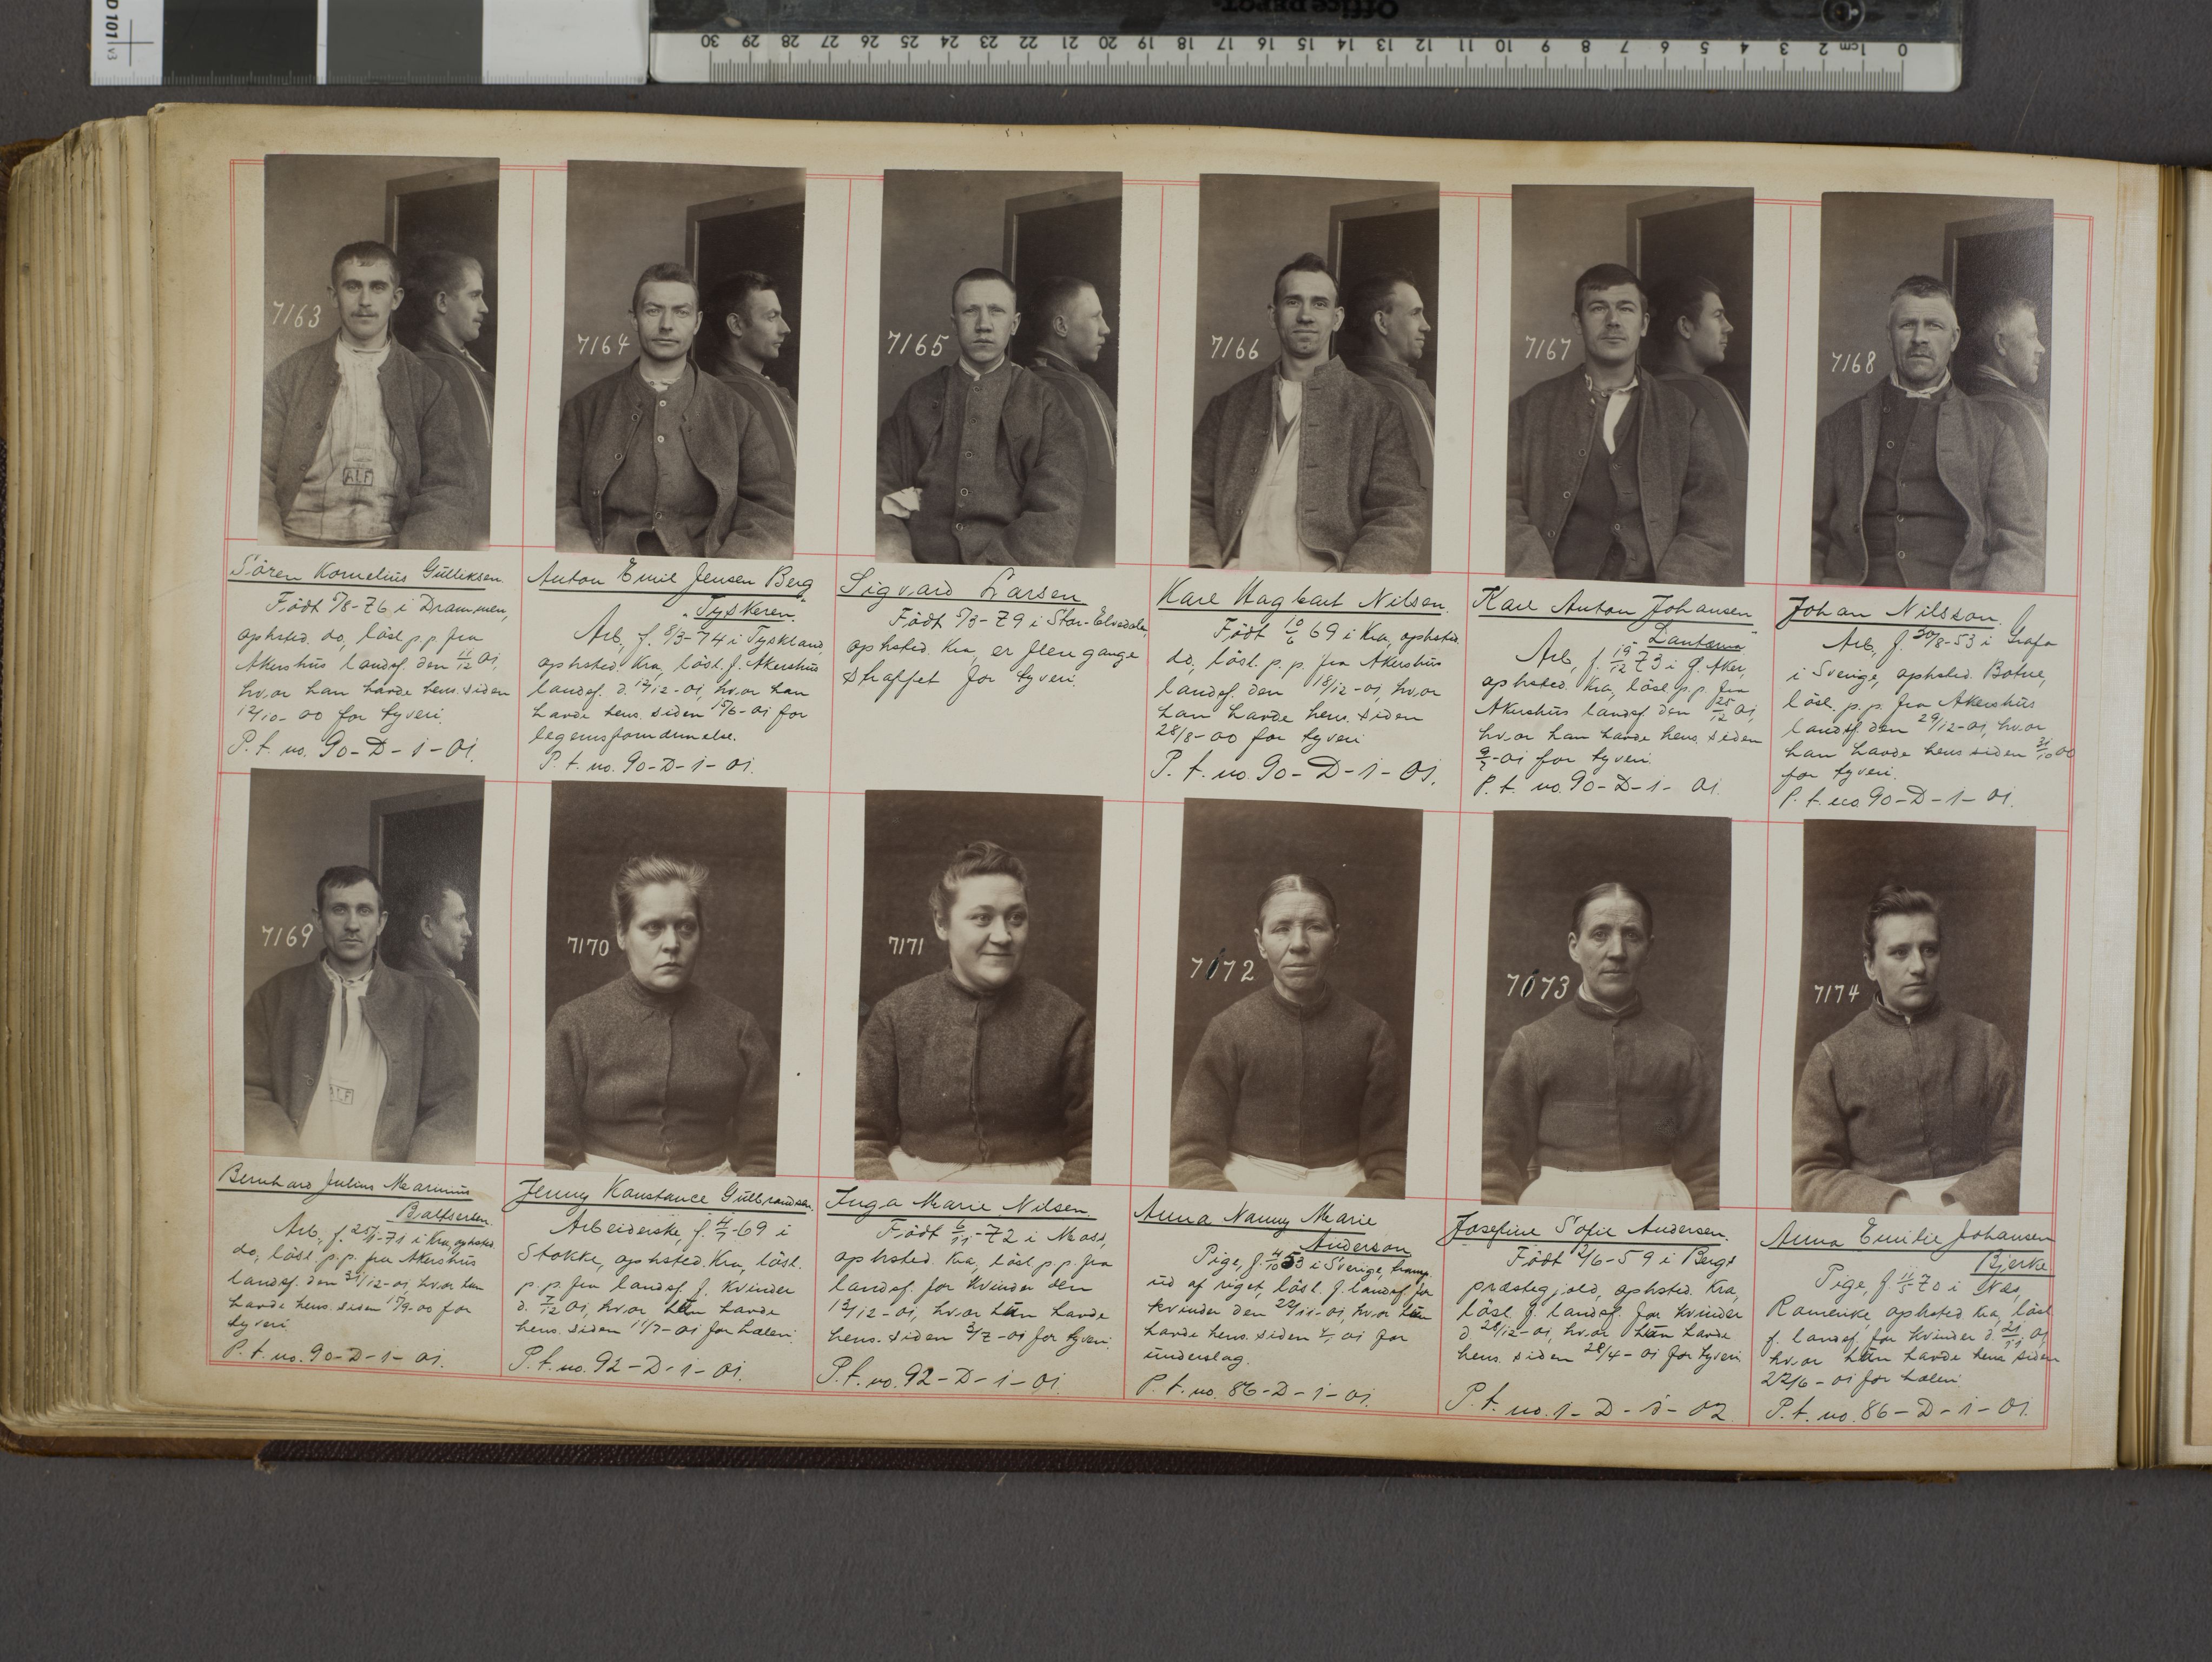 D 101 v3
Office DEPOT
30 29 28 27 26 25 24 23 22 21 20 19 18 17 16 15 14 13 12 11 10 9 8 7 6 5 4 3 2 1cm 0
7163
ALF
Sören Kornelius Gulliksen.
Födt 5/8-76 i Drammen,
ophsted. do, lösl. p.p. fra
Akershus landsf. den 11/12 01,
hvor han havde hens. siden
12/10-00 for tyveri.
P.t. no. 90-D-1-01.
7164
Anton Emil Jensen Berg
"Tyskeren"
Arb, f. 8/3-74 i Tyskland,
ophsted. Kra, lösl. f. Akershus
landsf. d. 12/12-01, hvor han
havde hens. siden 15/6-01 for
legemsfornærmelse.
P.t. no. 90-D-1-01.
7165
Sigvard Larsen
Födt 5/3-79 i Stor-Elvedalen,
ophsted. Kra, er flere gange
straffet for tyveri.
7166
Karl Hagbart Nilsen.
Födt 10/6 69 i Kra, ophsted.
do, lösl. p.p. fra Akershus
landsf. den 18/12-01, hvor
han havde hens. siden
28/8-00 for tyveri
P.t. no. 90-D-1-01.
7167
Karl Anton Johansen
"Lanterna"
Arb, f. 19/12 73 i Ø. Aker,
ophsted. Kra, lösl. p.p. fra
Akershus landsf. den 25/12 01,
hvor han havde hens. siden
9/7-01 for tyveri.
P.t. no. 90-D-1-01.
7168
Johan Nilsson.
Arb, f. 30/8-53 i Grafa
i Sverige, ophsted. Botne,
lösl. p.p. fra Akershus
landsf. den 29/12-01, hvor
han havde hens siden 31/10 00
for tyveri.
P.t. no. 90-D-1-01.
7169
ALF
Bernhard Julius Marinius
Baltsersen.
Arb., f. 25/1-71 i Kra, ophsted.
do, lösl. p.p. fra Akershus
landsf. den 31/12-01, hvor han
havde hens. siden 15/9-00 for
tyveri
P.t. no. 90-D-1-01.
7170
Jenny Konstance Gulbrandsen.
Arbeiderske, f. 4/7-69 i
Stokke, ophsted. Kra, lösl.
p.p. fra landsf. f. kvinder
d. 7/12 01, hvor hun havde
hens. siden 11/7-01 for hæleri.
P.t. no. 92-D-1-01.
7171
Inga Marie Nilsen.
Födt 6/11-72 i Moss,
ophsted. Kra, lösl. p.p. fra
landsf. for kvinder den
12/12-01, hvor hun havde
hens. siden 3/7-01 for tyveri.
P.t. no. 92-D-1-01.
7172
Anna Nanny Marie
Anderson
Pige, f. 4/10 53 i Sverige,
ud af riget, lösl. f. landsf. for
kvinder den 22/11-01, hvor hun
havde hens. siden 01 for
underslag.
P.t. no. 86-D-1-01.
7173
Josefine Sofie Andersen.
Födt 2/6-59 i Bergs
præstegjeld, ophsted. Kra,
lösl. f. landsf. for kvinder
d. 28/12-01, hvor hun havde
hens. siden 28/4-01 for tyveri
P.t. no. 1-D-1-02.
7174
Anna Emilie Johansen
Bjerke
Pige, f. 11/5-70 i Næs,
Romerike, ophsted. Kra, lösl.
f. landsf. for kvinder d. 21/11 01
hvor hun havde hens. siden
22/6-01 for hæleri
P.t. no. 86-D-1-01.